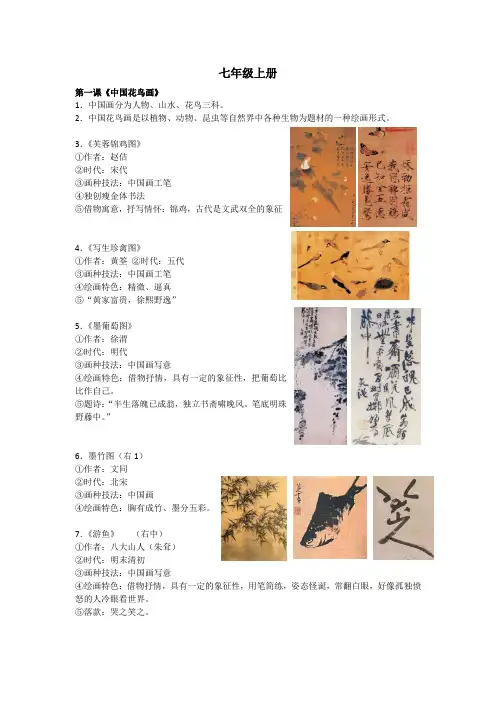 七年级上册
第一课《中国花鸟画》
1．中国画分为人物、山水、花鸟三科。
2．中国花鸟画是以植物、动物、昆虫等自然界中各种生物为题材的一种绘画形式。
3.《芙蓉锦鸡图》
①作者：赵佶
②时代：宋代
③画种技法：中国画工笔
④独创瘦金体书法
⑤借物寓意，抒写情怀：锦鸡，古代是文武双全的象征
4.《写生珍禽图》
①作者：黄筌 ②时代：五代
③画种技法：中国画工笔
④绘画特色：精微、逼真
⑤“黄家富贵，徐熙野逸”
5.《墨葡萄图》
①作者：徐渭
②时代：明代
③画种技法：中国画写意
④绘画特色：借物抒情，具有一定的象征性，把葡萄比
比作自己。
⑤题诗：“半生落魄已成翁，独立书斋啸晚风。笔底明珠
野藤中。”
6．墨竹图（右1）
①作者：文同
②时代：北宋
③画种技法：中国画
④绘画特色：胸有成竹、墨分五彩。
7.《游鱼》 （右中）
①作者：八大山人（朱耷）
②时代：明末清初
③画种技法：中国画写意
④绘画特色：借物抒情，具有一定的象征性，用笔简练，姿态怪诞，常翻白眼，好像孤独愤
怒的人冷眼看世界。
⑤落款：哭之笑之。